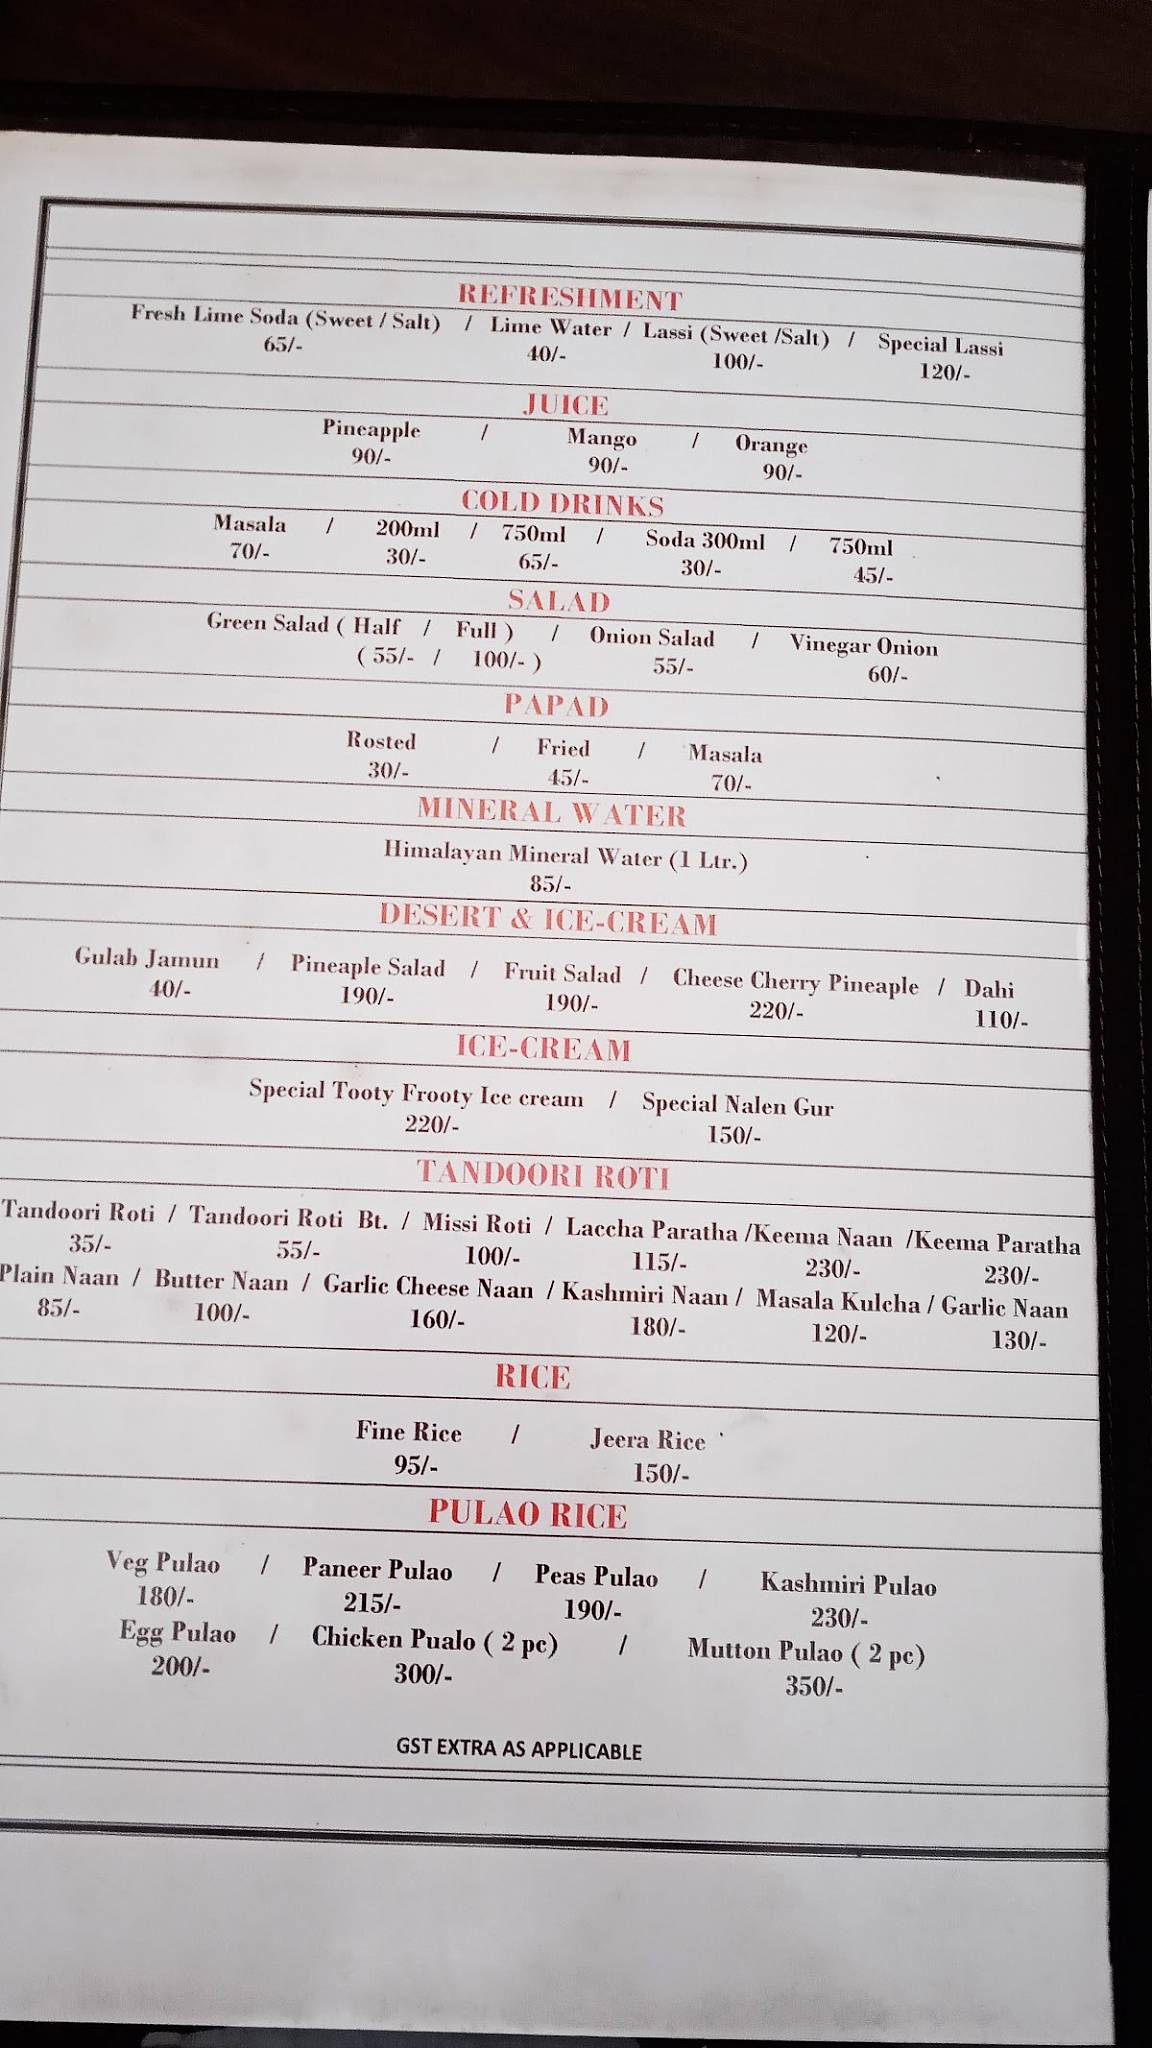 REFRESHMENT
Fresh Lime Soda (Sweet / Salt) / Lime Water / Lassi (Sweet /Salt) / Special Lassi
65/- 40/- 100/- 120/-
JUICE
Pineapple / Mango / Orange
90/- 90/- 90/-
COLD DRINKS
Masala / 200ml / 750ml / Soda 300ml / 750ml
70/- 30/- 65/- 30/- 45/-
SALAD
Green Salad ( Half / Full ) / Onion Salad / Vinegar Onion
( 55/- / 100/- ) 55/- 60/-
PAPAD
Rosted / Fried / Masala
30/- 45/- 70/-
MINERAL WATER
Himalayan Mineral Water (1 Ltr.)
85/-
DESERT & ICE-CREAM
Gulab Jamun / Pineaple Salad / Fruit Salad / Cheese Cherry Pineaple / Dahi
40/- 190/- 190/- 220/- 110/-
ICE-CREAM
Special Tooty Frooty Ice cream / Special Nalen Gur
220/- 150/-
TANDOORI ROTI
Tandoori Roti / Tandoori Roti Bt. / Missi Roti / Laccha Paratha /Keema Naan /Keema Paratha
35/- 55/- 100/- 115/- 230/- 230/-
Plain Naan / Butter Naan / Garlic Cheese Naan / Kashmiri Naan / Masala Kulcha / Garlic Naan
85/- 100/- 160/- 180/- 120/- 130/-
RICE
Fine Rice / Jeera Rice
95/- 150/-
PULAO RICE
Veg Pulao / Paneer Pulao / Peas Pulao / Kashmiri Pulao
180/- 215/- 190/- 230/-
Egg Pulao / Chicken Pualo ( 2 pc) / Mutton Pulao ( 2 pc)
200/- 300/- 350/-
GST EXTRA AS APPLICABLE